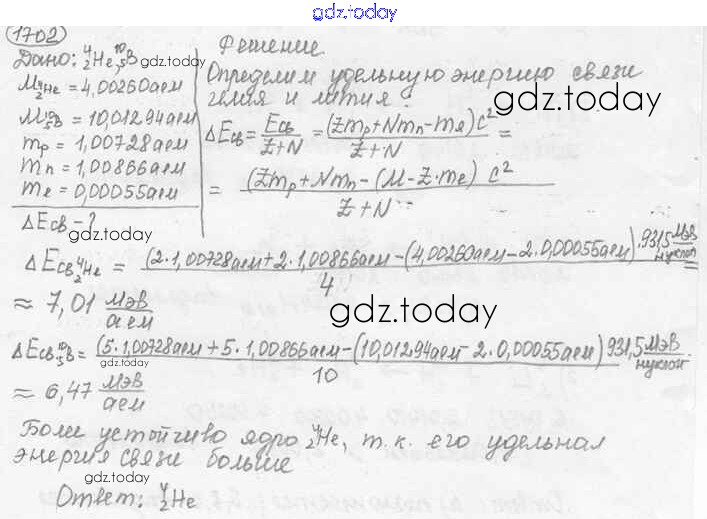 gdz.today
1702
Дано: ⁴₂He, ¹⁰₅B
M ⁴₂He = 4,00260аем
M ¹⁰₅B = 10,01294аем
mp = 1,00728аем
mn = 1,00866аем
me = 0,00055аем
ΔEсв - ?
gdz.today
gdz.today
gdz.today
Решение
Определим удельную энергию связи
гелия и лития.
gdz.today
ΔEсв = Eсв/(Z+N) = (Zmp+Nmn-mя)c²/(Z+N) =
= (Zmp+Nmn-(M-Z·me) c²/(Z+N)
ΔEсв ⁴₂He = (2·1,00728аем+2·1,00866аем-(4,00260аем-2·0,00055аем)·931,5 МэВ/нуклон/4 =
≈ 7,01 МэВ/аем
gdz.today
ΔEсв ¹⁰₅B = (5·1,00728аем+5·1,00866аем-(10,01294аем-2·0,00055аем) 931,5 МэВ/нуклон/10 ·
≈ 6,47 МэВ/аем
Боли устойчиво ядро ⁴₂He, т.к. его удельная
энергия связи больше
Ответ: ⁴₂He
gdz.today
gdz.today